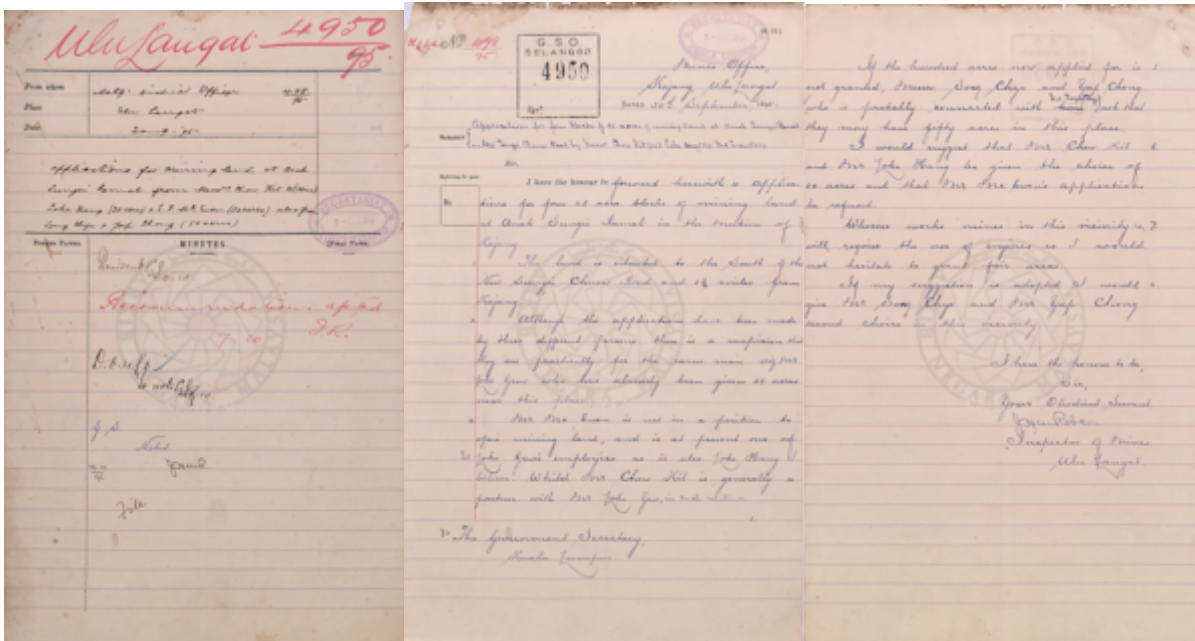 Ulu Langat 4950
95
From whom
Actg: District Officer
Place
Ulu Langat
Date
applications for mining land at Anak
Sungei Ramal from Messrs Chow Kit (20 acres)
Loke Hang (20 acres) & E. F. McEwan (20 acres) also from
Song Chye & Yap Chong (50 acres)
SECRETARIAT
Former Papers.
MINUTES
Other Papers.
Resident
Recommendations appd
7. 10
D. O.
to note
G S
Noted
File
SECRETARIAT
G. S. O.
SELANGOR
4950
Mines Office,
Kajang Ulu Langat
Dated 30th September, 1895.
Application for four blocks of 20 acres of mining land at Anak Sungei Ramal
Sir,
No.
I have the honour to forward herewith 4 applica
tions for four 20 acre blocks of mining land
at Anak Sungei Ramal in the Mukim of
Kajang
The land is situated to the South of the
New Sungei Chuow Road and 1½ miles from
Kajang.
Although the applications have been made
by three different persons there is a suspicion that
they are practically for the same man viz Mr.
Loke Yew who has already been given 20 acres
near this place.
Mr McEwan is not in a position to
open mining land, and is at present one of
Loke Yew's employees as is also Loke Hang
Whilst Mr Chow Kit is generally a
partner with Mr Loke Yew,
To The Government Secretary,
Kuala Lumpur
If the hundred acres now applied for is
not granted, Messrs Song Chye and Yap Chong
who is probably connected with ask that
they may have fifty acres in this place.
I would suggest that Mr Chow Kit
and Mr Loke Hang be given the choice of
20 acres and that Mr McEwan's applications
be refused.
Whoever works mines in this vicinity
will require the use of engines so I would
not hesitate to grant fair areas.
If my suggestion is adopted I would
give Mr Song Chye and Mr Yap Chong
second choice in this vicinity.
I have the honour to be,
Sir,
Your Obedient Servant
Inspector of Mines
Ulu Langat